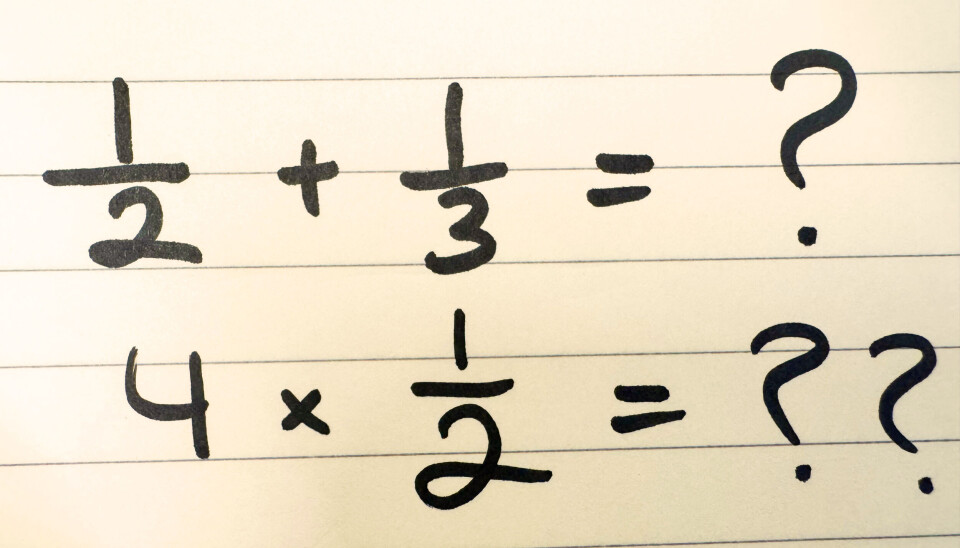 1/2 + 1/3 = ?
4 × 1/2 = ??